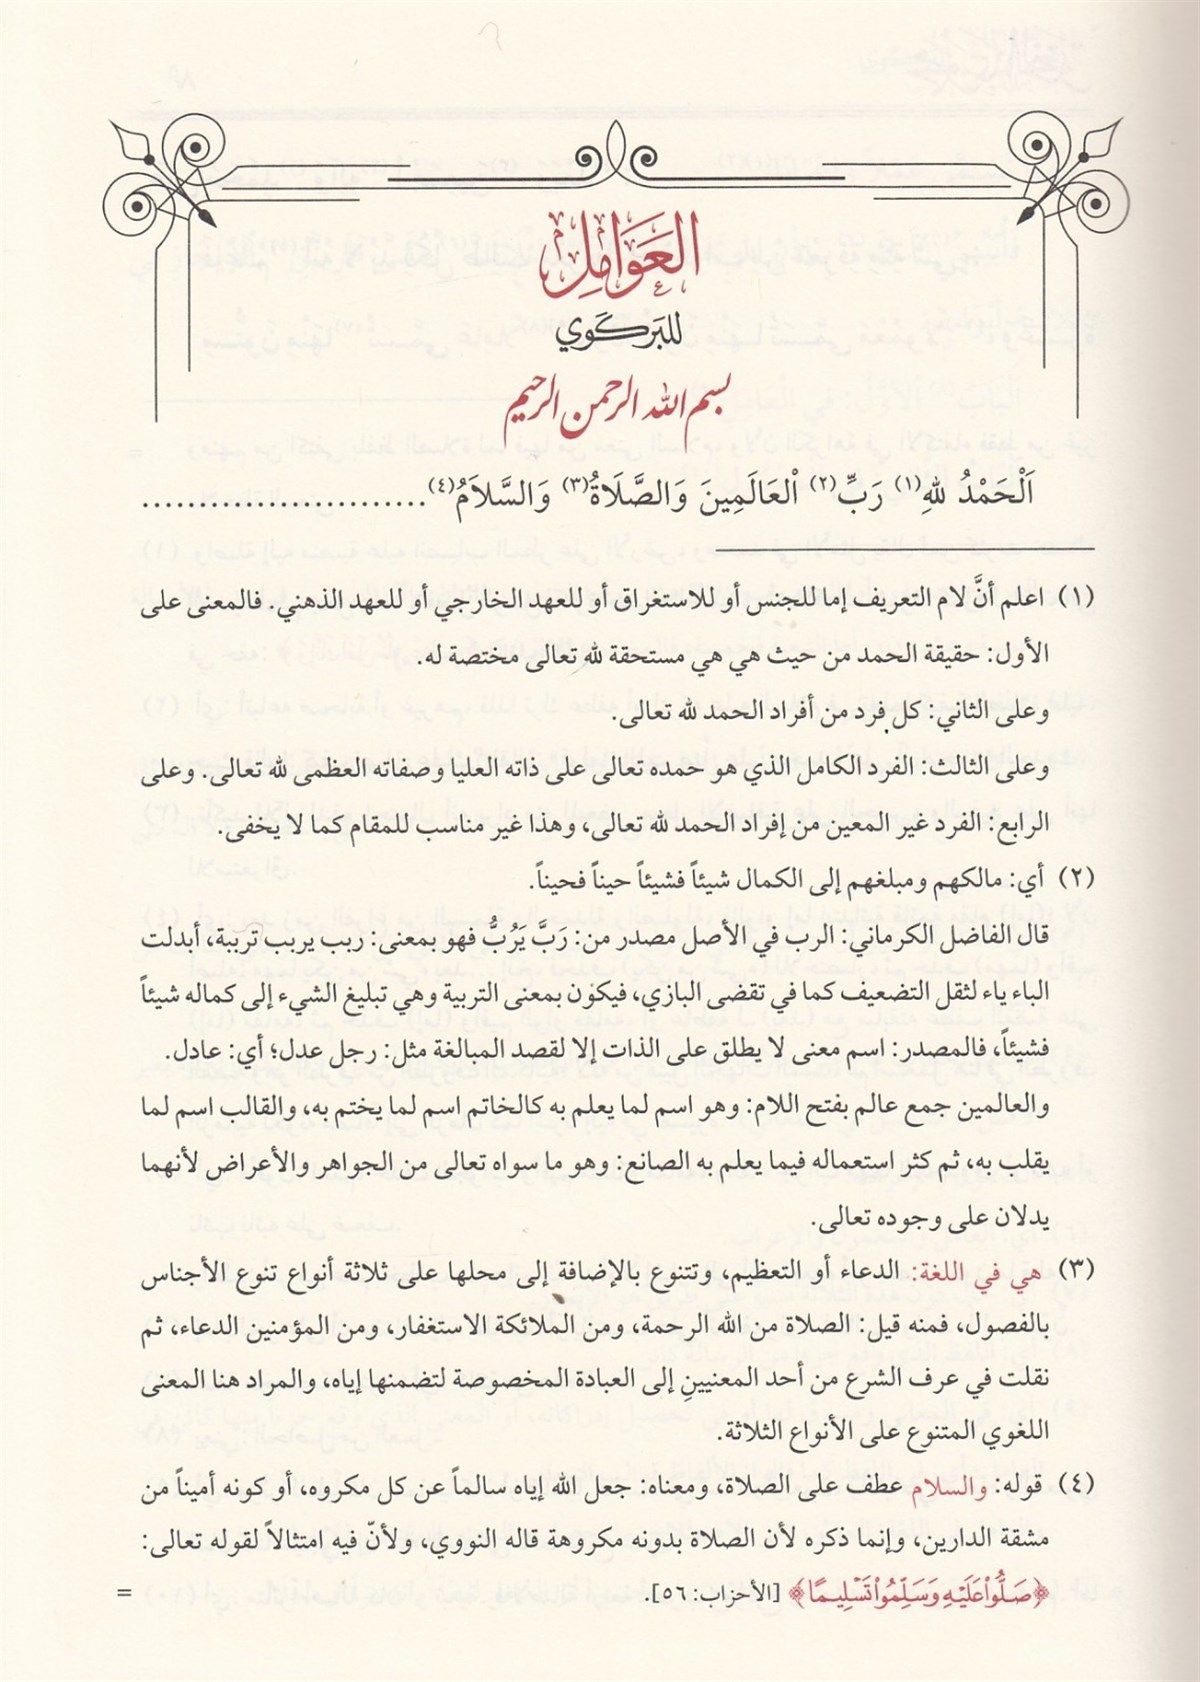 العَوَامِل
للبَركَوي
بسم الله الرحمن الرحيم
اَلْحَمْدُ للهِ(١) رَبِّ(٢) اْلعَالَمِينَ وَالصَّلَاةُ(٣) وَالسَّلَامُ(٤)..........................
(١) اعلم أنَّ لام التعريف إما للجنس أو للاستغراق أو للعهد الخارجي أو للعهد الذهني. فالمعنى على
الأول: حقيقة الحمد من حيث هي هي مستحقة لله تعالى مختصة له.
وعلى الثاني: كل فرد من أفراد الحمد لله تعالى.
وعلى الثالث: الفرد الكامل الذي هو حمده تعالى على ذاته العليا وصفاته العظمى لله تعالى. وعلى
الرابع: الفرد غير المعين من إفراد الحمد لله تعالى، وهذا غير مناسب للمقام كما لا يخفى.
(٢) أي: مالكهم ومبلغهم إلى الكمال شيئاً فشيئاً حيناً فحيناً.
قال الفاضل الكرماني: الرب في الأصل مصدر من: رَبَّ يَرُبُّ فهو بمعنى: ربب يربب ترببة، أبدلت
الباء ياء لثقل التضعيف كما في تقضى البازي، فيكون بمعنى التربية وهي تبليغ الشيء إلى كماله شيئاً
فشيئاً، فالمصدر: اسم معنى لا يطلق على الذات إلا لقصد المبالغة مثل: رجل عدل؛ أي: عادل.
والعالمين جمع عالم بفتح اللام: وهو اسم لما يعلم به كالخاتم اسم لما يختم به، والقالب اسم لما
يقلب به، ثم كثر استعماله فيما يعلم به الصانع: وهو ما سواه تعالى من الجواهر والأعراض لأنهما
يدلان على وجوده تعالى.
(٣) هي في اللغة: الدعاء أو التعظيم، وتتنوع بالإضافة إلى محلها على ثلاثة أنواع تنوع الأجناس
بالفصول، فمنه قيل: الصلاة من الله الرحمة، ومن الملائكة الاستغفار، ومن المؤمنين الدعاء، ثم
نقلت في عرف الشرع من أحد المعنيينِ إلى العبادة المخصوصة لتضمنها إياه، والمراد هنا المعنى
اللغوي المتنوع على الأنواع الثلاثة.
(٤) قوله: والسلام عطف على الصلاة، ومعناه: جعل الله إياه سالماً عن كل مكروه، أو كونه أميناً من
مشقة الدارين، وإنما ذكره لأن الصلاة بدونه مكروهة قاله النووي، ولأنّ فيه امتثالاً لقوله تعالى:
﴿صَلُّوا۟ عَلَيْهِ وَسَلِّمُوا۟ تَسْلِيمًا﴾ [الأحزاب: ٥٦]. =